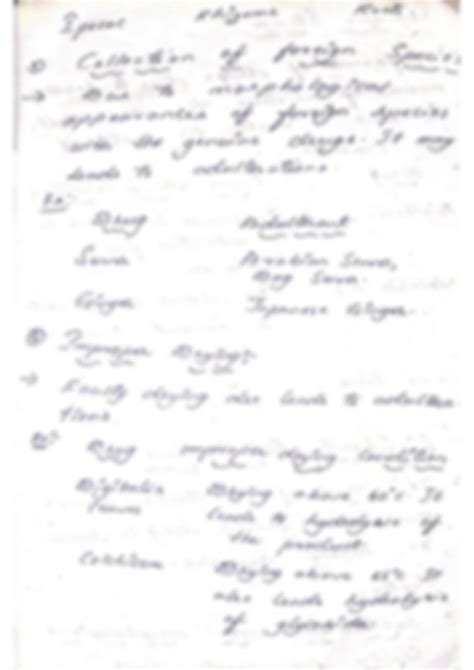 Rhizome Root
Collection of foreign Species
→ Due to morphological
appearance of foreign species
with the genuine It may
leads to adulterations.
Ex:
Drug Adulterant
Senna Arabian Senna,
Dog Senna.
Ginger Japanese Ginger.
Improper Drying:
→ Faulty drying also leads to adultera
tions
Ex: Drug improper drying condition
Digitalis Drying above It
leaves leads to hydrolysis of
the product.
Colchicum Drying above It
also leads hydrolysis
of glycoside